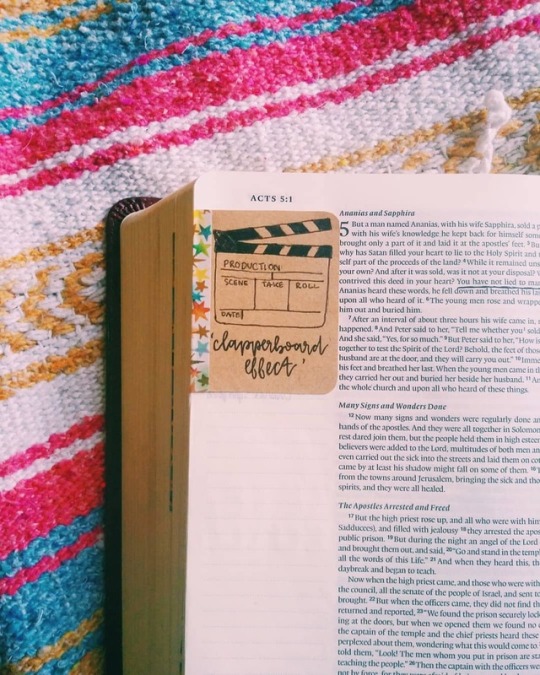 ACTS 5:1
PRODUCTION
SCENE TAKE ROLL
DATE
'clapperboard
effect'
Ananias and Sapphira
5 But a man named Ananias, with his wife Sapphira, sold a
with his wife's knowledge he kept back for himself some
brought only a part of it and laid it at the apostles' feet. 3
why has Satan filled your heart to lie to the Holy Spirit and
self part of the proceeds of the land? 4While it remained
your own? And after it was sold, was it not at your disposal?
contrived this deed in your heart? You have not lied to
Ananias heard these words, he fell down and breathed his
upon all who heard of it. 6The young men rose and wrapped
him out and buried him.
7After an interval of about three hours his wife came in,
happened. 8And Peter said to her, "Tell me whether you sold
And she said, "Yes, for so much." 9But Peter said to her, "How is
together to test the Spirit of the Lord? Behold, the feet of those
husband are at the door, and they will carry you out." 10
his feet and breathed her last. When the young men came in
they carried her out and buried her beside her husband. 11
the whole church and upon all who heard of these things.
Many Signs and Wonders Done
12Now many signs and wonders were regularly done
hands of the apostles. And they were all together in Solomon
rest dared join them, but the people held them in high esteem
believers were added to the Lord, multitudes of both men
even carried out the sick into the streets and laid them on
came by at least his shadow might fall on some of them. 16
from the towns around Jerusalem, bringing the sick and
spirits, and they were all healed.
The Apostles Arrested and Freed
17But the high priest rose up, and all who were with him
Sadducees), and filled with jealousy 18they arrested the
public prison. 19But during the night an angel of the Lord
and brought them out, and said, 20"Go and stand in the
all the words of this Life." 21And when they heard this,
daybreak and began to teach.
Now when the high priest came, and those who were with
the council, all the senate of the people of Israel, and sent to
brought. 22But when the officers came, they did not find
returned and reported, 23"We found the prison securely
ing at the doors, but when we opened them we found no
the captain of the temple and the chief priests heard these
perplexed about them, wondering what this would come to
told them, "Look! The men whom you put in prison are
teaching the people." 26Then the captain with the officers
not by force, for they were afraid of